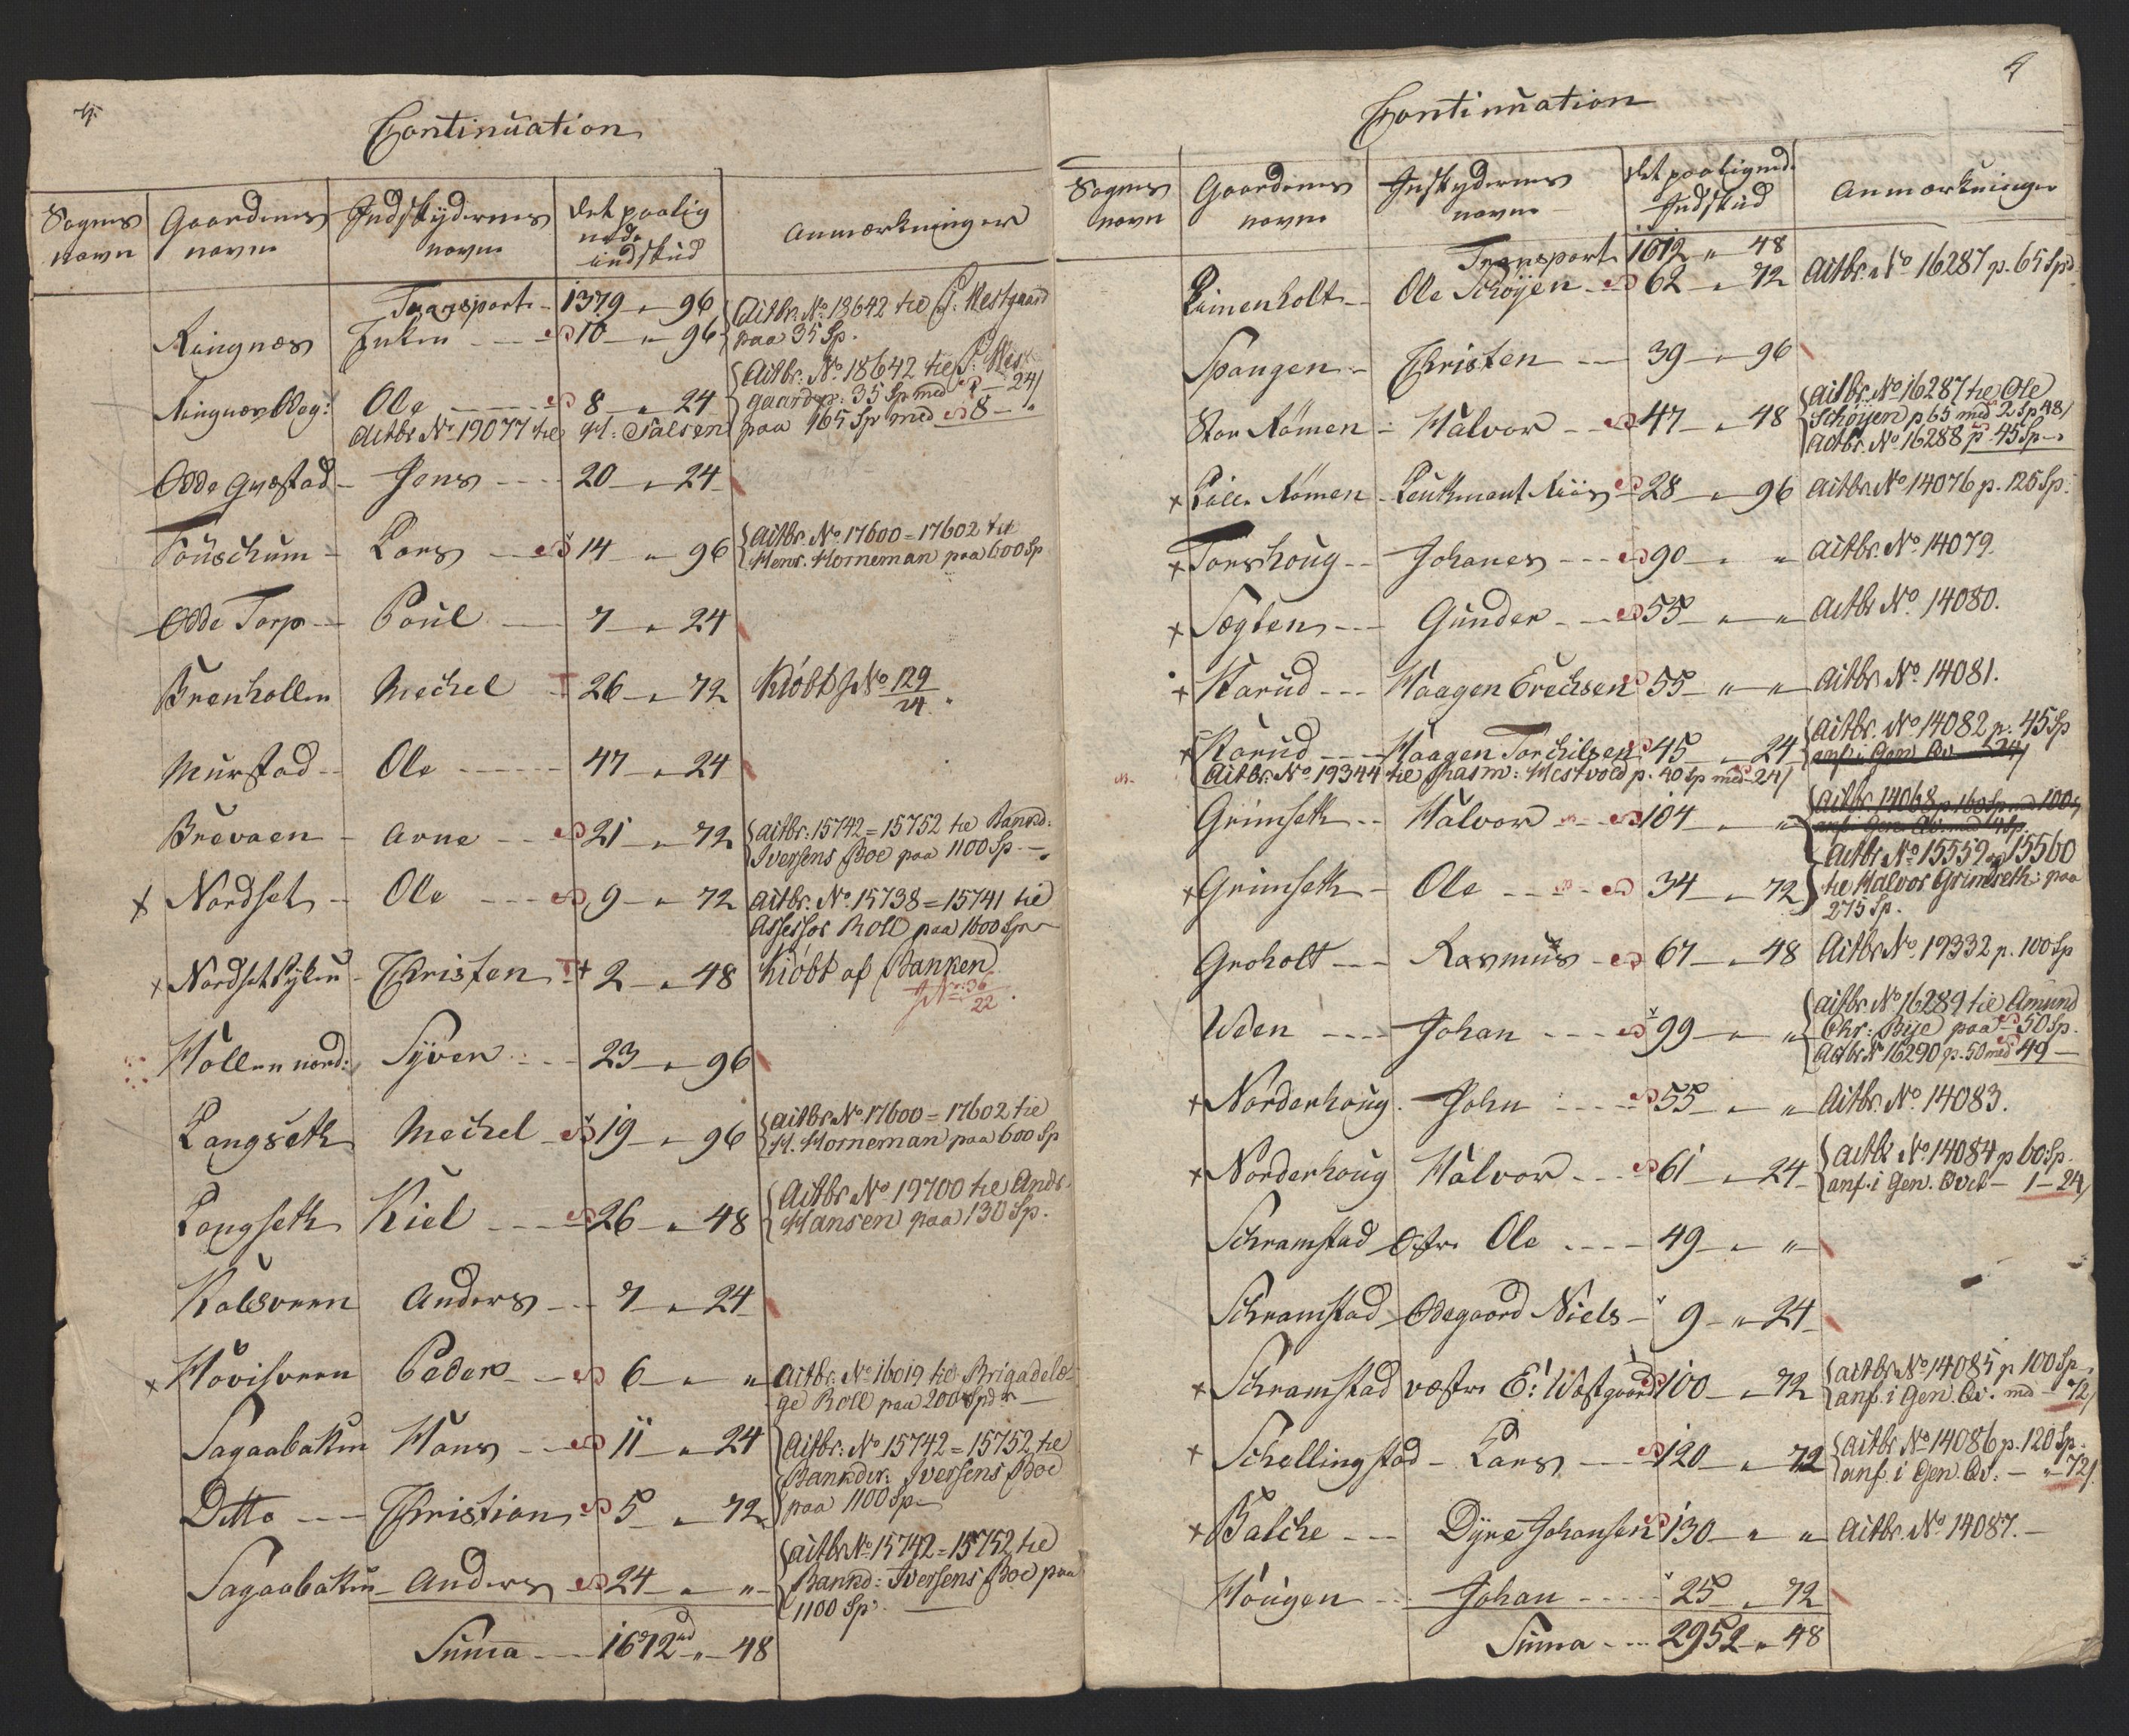 4.
Continuation
Sogners navn | Gaardenes navne | Indskydernes navne | det paalignede indskud | Anmærkninger
Transport - 1379 " 96
Ringnæs Enken - - 10 " 96 Actbr. No. 18642 til P. Westgaard paa 35 Sp.
Ole - - - 8 " 24 Actbr: No. 18642 til P: Westgaard p: 35 Sp med - 24/
Actbr No. 19077 til H: Palsen paa 165 Sp med 8 - "
Odde Gusestad - Jens - - - 20 " 24
Touschum - Lars - - 14 " 96 Actbr. No. 17600 = 17602 til Henr. Horneman paa 600 Sp
Odde Torp - Poul - - 7 " 24
Brenhollen Mechel - 26 " 72 Kiöbt No 129/24.
Murstad - Ole - - - 47 " 24
Brevaen - Arne - - 21 " 72 Actbr: 15742 = 15752 til Bankd: Iversens Boe paa 1100 Sp. -
x Nordset - Ole - - - 9 " 72 Actbr. No. 15738 = 15741 til Assessor Roll paa 1600 Sp
x Christen + 2 " 48 Kiöbt af Banken No: 36/22.
Hollen nord: Syver - - 23 " 96
Langseth Mechel - 19 " 96 Actbr No. 17600 = 17602 til H. Horneman paa 600 Sp
Langseth Kiel - - 26 " 48 Actbr No. 19700 til Andr. Hansen paa 130 Sp.
Kalsveen Anders - - 7 " 24
x Hovisveen Peder - - 6 " " Actbr. No. 16019 til Brigadelæge Roll paa 200 Spdr -
Sagaabakken Hans - - 11 " 24 Actbr: No. 15742 = 15752 til Bankdir: Iversens Boe paa 1100 Sp -
Ditto - - Christian - 5 " 72
Sagaabakken - Anders - 24 " " Actbr No. 15742 = 15752 til Bankd: Iversens Boe paa 1100 Sp. -
Suma - - 1612 " 48
4
Continuation
Sogners navn | Gaardenes navne | Indskydernes navne | det paalignede Indskud | Anmærkninger
Transport 1612 " 48
Leinenholt - Ole Schöyen - 62 " 72 Actbr. No 16287 p. 65 Spd.
Spangen - Christen - - 39 " 96
Stor Römen - Halvor - - 47 " 48 Actbr. No 16287 til Ole Schöyen p 65 med 2 Sp 48/
Actbr. No. 16288 p 45 Sp -
x Lille Römen - Leutenant Riis - 28 " 96 Actbr No 14076 p. 125 Sp:
x Torshoug - - Johanes - - - 90 " " Actbr. No. 14079.
x Sogten - - - Gunder - - 55 " " Actbr No. 14080.
x Karud - - - Haagen Erechsen 55 " " Actbr No. 14081.
x Karud - - - Haagen Torchilsen 45 " 24 Actbr. No 14082 p: 45 Sp
anf. i Gen. Qv. - 24/
Actbr. No. 19344 til Rasm: Westvold p. 40 Sp med 24/
Grimseth - - Halvor - - 104 " " Actbr. 14068 p. 160 Sp 100
Actbr No. 15559 og 15560 til Halvor Grimseth: paa 275 Sp.
x Grimseth - Ole - - - 34 " 72
Groholt - - - Rasmus - 67 " 48 Actbr. No. 19332 p. 100 Sp
Ween - - - Johan - - - 99 " " Actbr. No. 16289 til Amund Chr: Bye paa - 50 Sp.
Actbr No 16290 p. 50 med 49 -
x Norderhoug - John - - - 55 " " Actbr. No. 14083.
x Norderhoug Halvor - - - 61 " 24 Actbr No. 14084 p 60 Sp.
anf. i Gen. Qvit - 1 - 24/
Schramstad östre Ole - - - 49 " "
Schramstad Ödegaard Niels - 9 " 24
x Schramstad vestre E: Westgaard 100 " 72 Actbr No. 14085 p 100 Sp
anf. i Gen. Qv. md - 72/
x Schellingstad - Lars - - 120 " 72 Actbr No 14086 p. 120 Sp.
anf. i Gen. Qv: - " 72/
x Balche - - Dyre Johansen 130 " " Actbr. No. 14087. -
Hougen - - Johan - - - 25 " 72
Suma - - - 2952 " 48